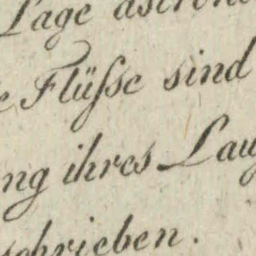 Lage astrono
e Flüſse sind
ng ihres Lau
schrieben.